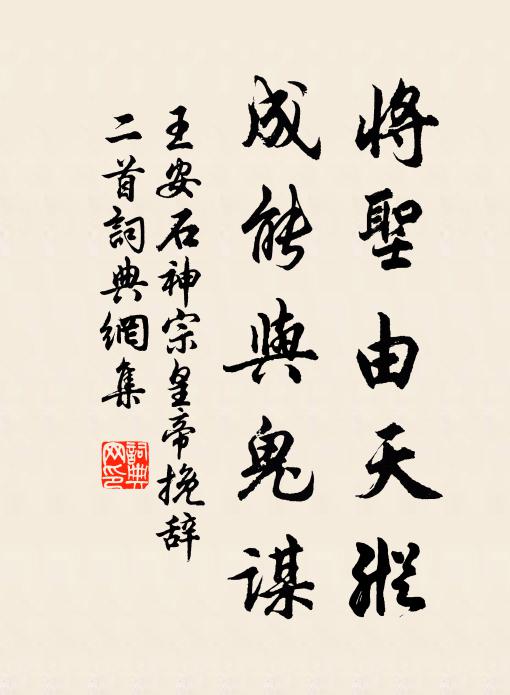 將聖由天縱
成能與鬼謀
王安石神宗皇帝挽辞
二首詞典網集
詞典
网印